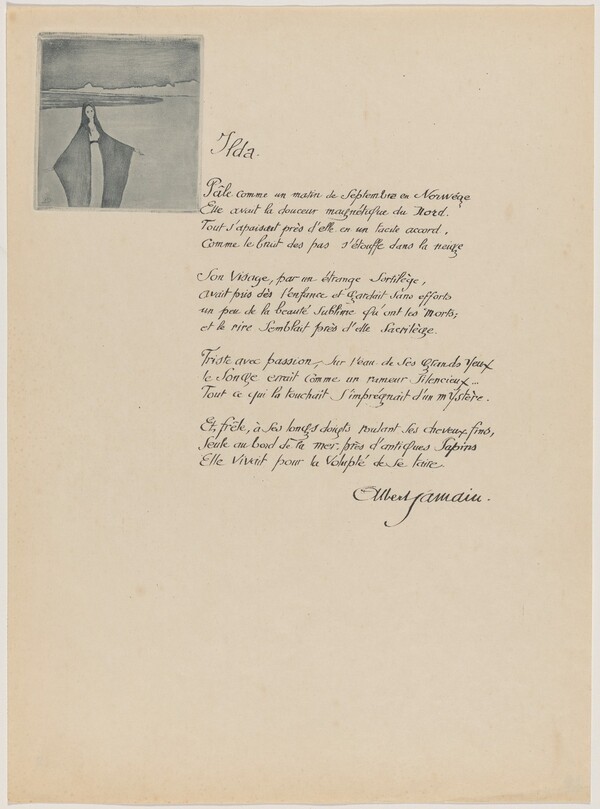 Ilda.
Pâle comme un matin de Septembre en Norvège
Elle avait la douceur magnétique du Nord.
Tout s'apaisait près d'elle en un tacite accord,
Comme le bruit des pas s'étouffe dans la neige
Son Visage, par un étrange Sortilège,
avait pris dès l'enfance et gardait sans efforts
un peu de la beauté Sublime qu'ont les Morts;
et le rire Semblait près d'elle Sacrilège.
Triste avec passion, Sur l'eau de Ses Grands Yeux
le Songe errait comme un rameur Silencieux...
Tout ce qui la touchait S'imprégnait d'un mystère.
Et, frêle, à Ses longs doigts roulant Ses cheveux fins,
Seule au bord de la mer, près d'antiques Sapins
Elle Vivait pour la Volupté de Se taire
Albert Samain.